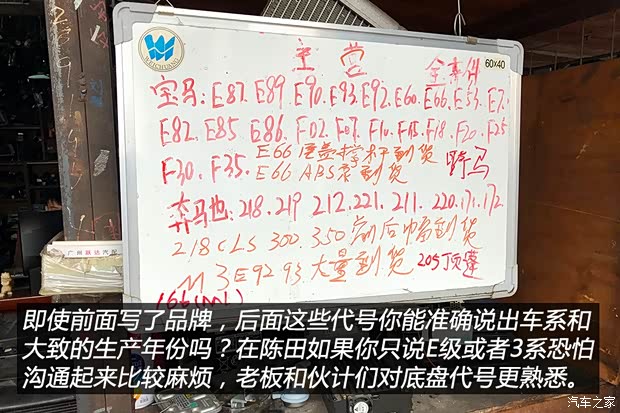 WEICHUANG
主营
60X40
全车件
宝马:E87.E89.E90.E93.E92.E60.E66.E53.E7
E82.E85.E86.F02.F07.F10.F15.F18.F20.F25
F30.F35.E66尾盖撑杆到货
野马
E66 ABS泵到货
奔马也:218.219 212.221.211.220.171.172
218CLS 300.350前后幅到货
M3E92 93大量到货 205顶蓬
166(ML)
广州
即使前面写了品牌，后面这些代号你能准确说出车系和
大致的生产年份吗？在陈田如果你只说E级或者3系恐怕
沟通起来比较麻烦，老板和伙计们对底盘代号更熟悉。
汽车之家